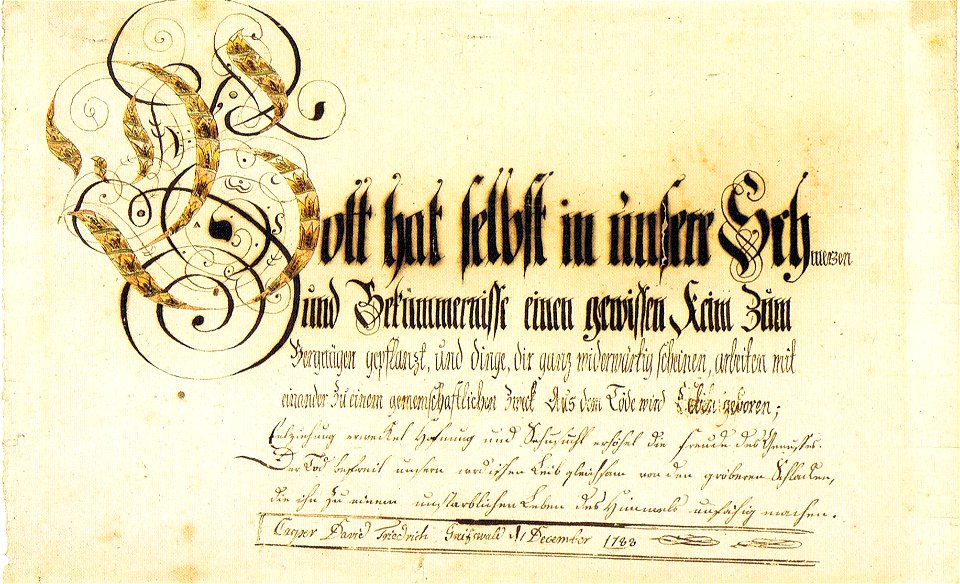 Gott hat selbst in unsere Schmerzen
und Bekümmernisse einen gewissen Keim zum
Vergnügen gepflanzt, und dinge, dir ganz widerwärtig scheinen, arbeiten mit
einander zu einem gemeinschaftlichen Zweck Aus dem Tode wird Leben geboren;
Entziehung erwecket Hofnung und Sehnsucht erhöhet die freude des Genusses.
Der Tod befreit unsern irdischen Leib gleichsam von den gröberen Schlacken,
die ihn zu einem unstarblichen Leben des Himmels unfähig machen.
Casper David Friedrich December 1788